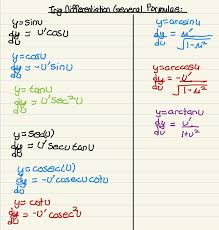 Trig Differentiation General Formulas:
y=sinu
dy/du = u'cosu
y=cosu
dy/du = -u'sinu
y=tanu
dy/du = u'sec²u
y=sec(u)
dy/du = u'secutanu
y=cosec(u)
dy/du = -u'cosecucotu
y=cotu
dy/du = -u'cosec²u
y=arcsinu
dy/du = u'/√1-u²
y=arccosu
dy/du = -u'/√1-u²
y=arctanu
dy/du = u'/1+u²